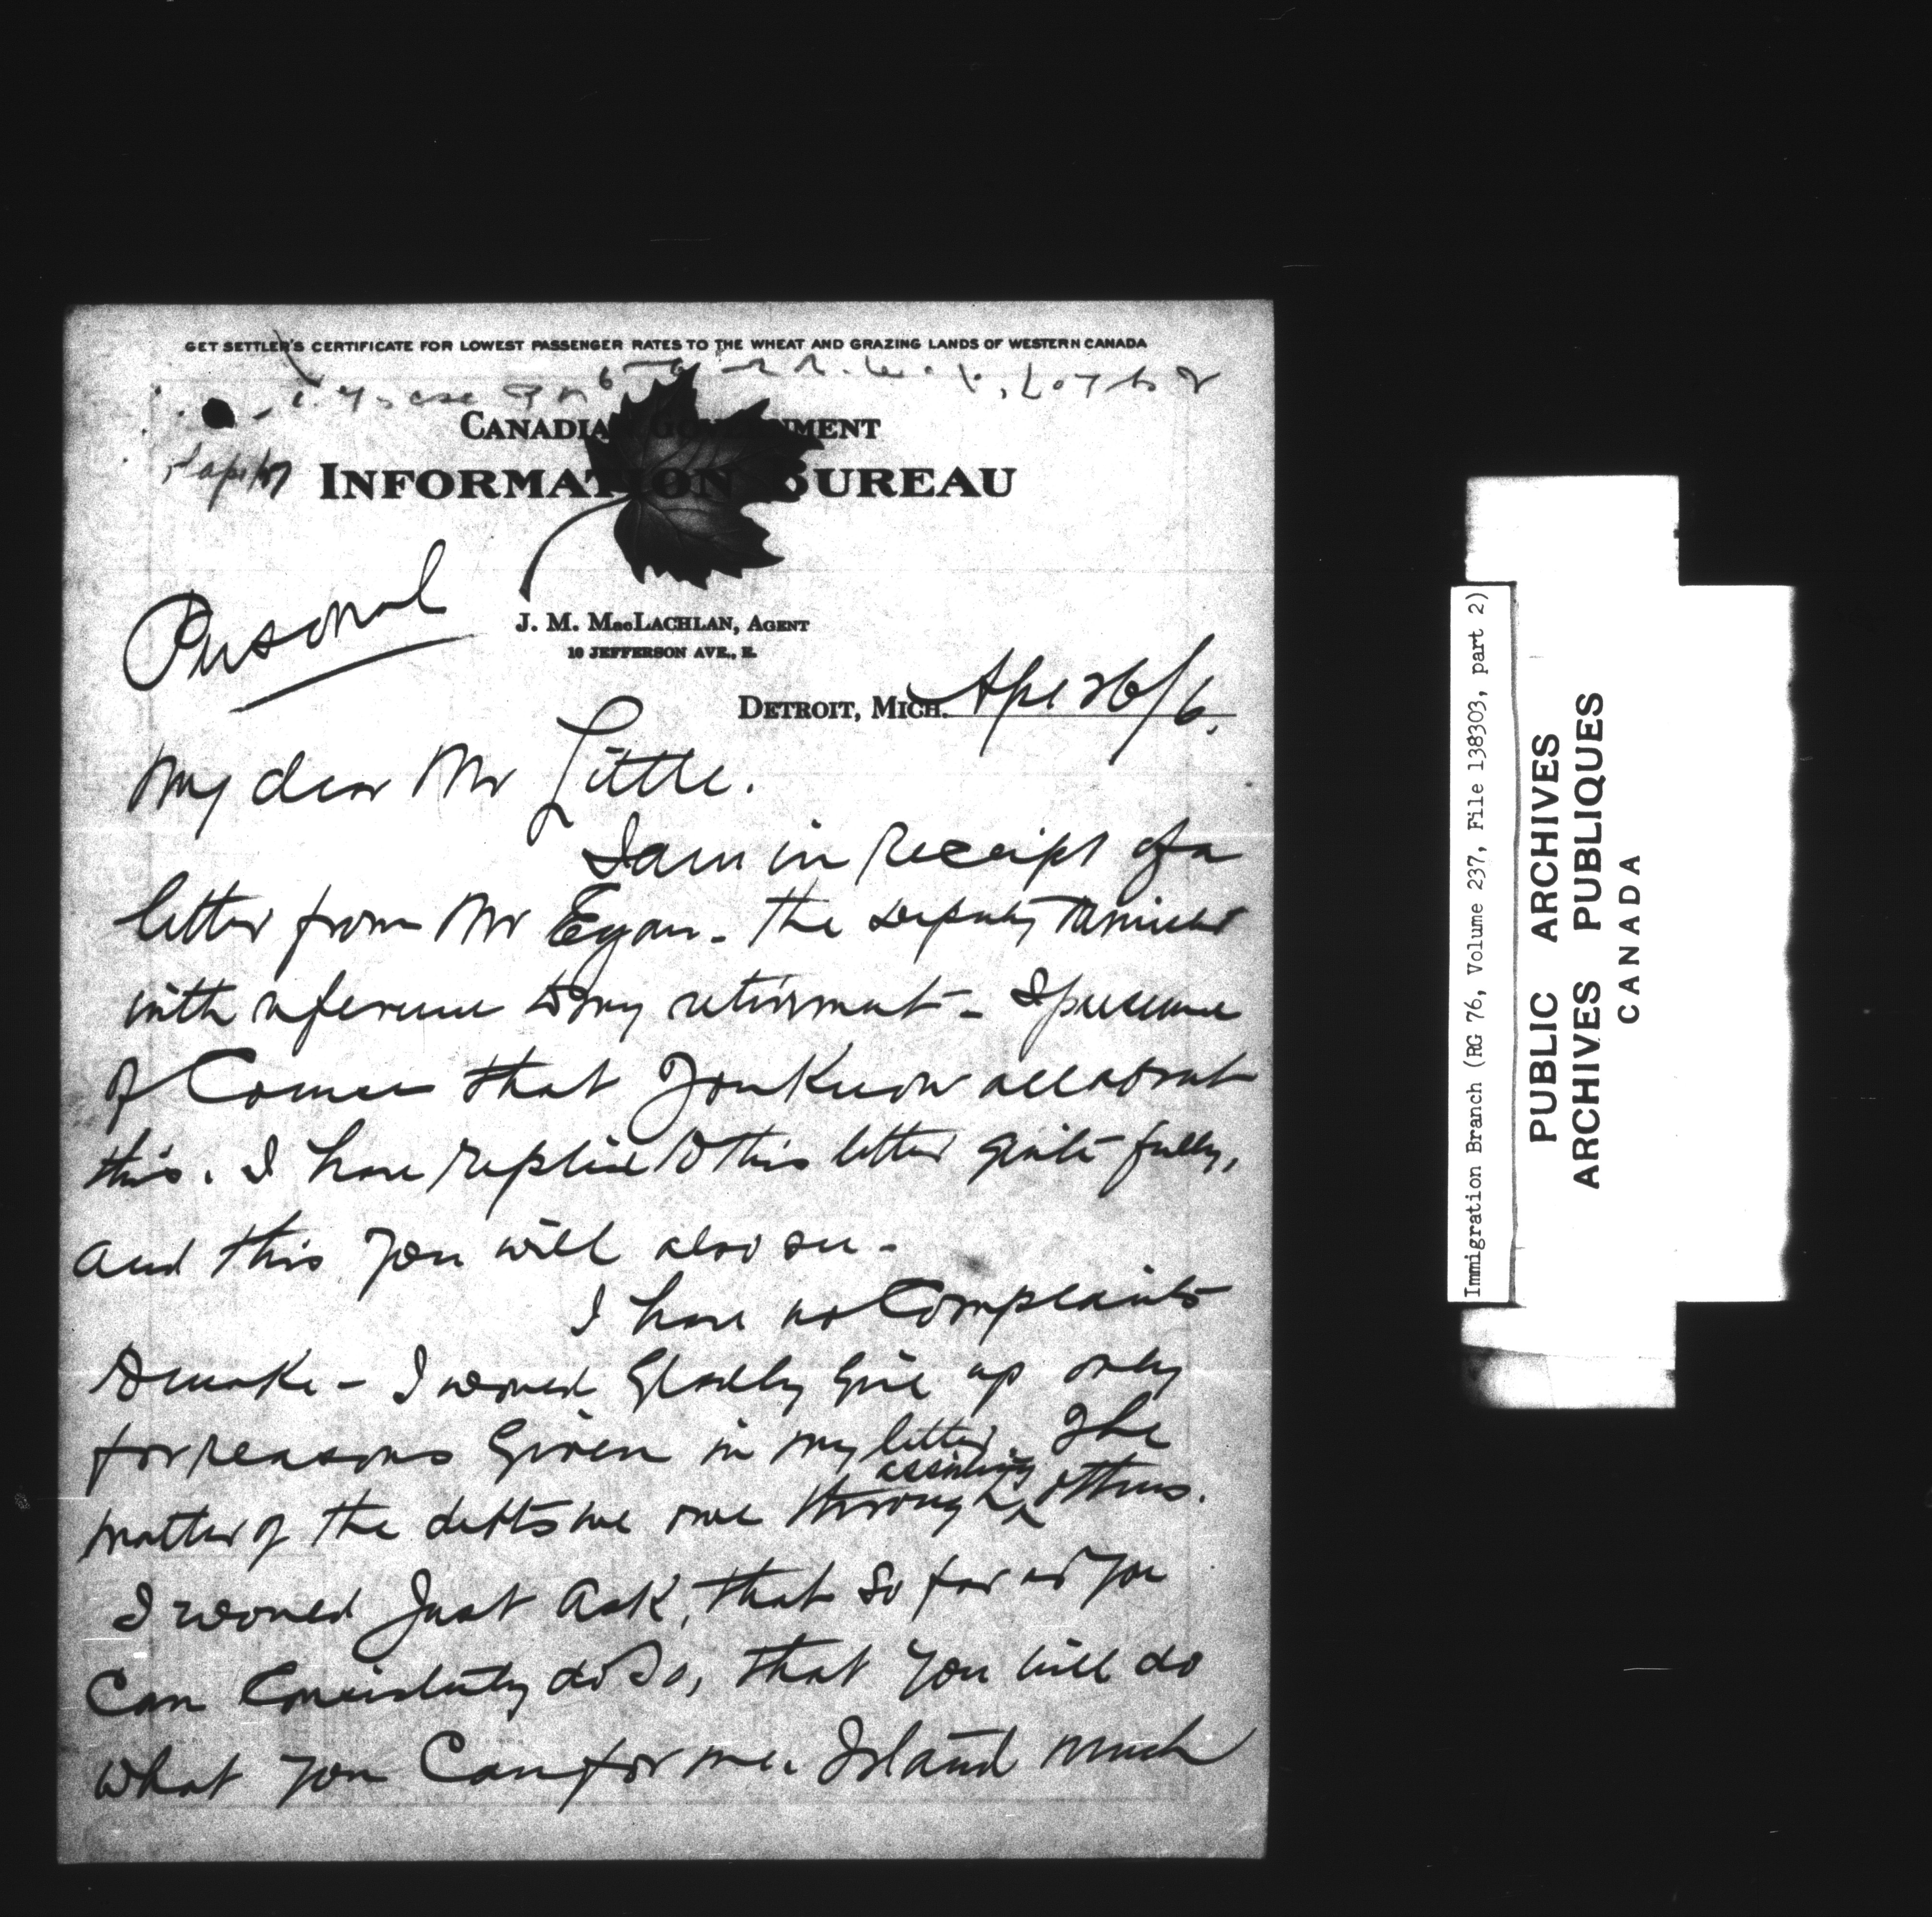 GET SETTLER'S CERTIFICATE FOR LOWEST PASSENGER RATES TO THE WHEAT AND GRAZING LANDS OF WESTERN CANADA
CANADIAN GOVERNMENT
INFORMATION BUREAU
Personal
J. M. MacLACHLAN, AGENT
10 JEFFERSON AVE., E.
DETROIT, MICH. Apl 26/6.
My dear Mr Little.
I am in Receipt of a
letter from Mr Egan - the Deputy Minister
with reference to my retirement - I presume
of Course that You Know all about
this. I have replied to this letter quite fully,
and this you will also see -
I have no Complaints
to make - I would Gladly Give up only
for reasons Given in my letter. The
matter of the debts we owe through assisting others.
I would Just Ask, that so far as you
Can Consistently do so, that you will do
what you Can for me. I stand much
Immigration Branch (RG 76, Volume 237, File 138303, part 2)
PUBLIC ARCHIVES
ARCHIVES PUBLIQUES
CANADA